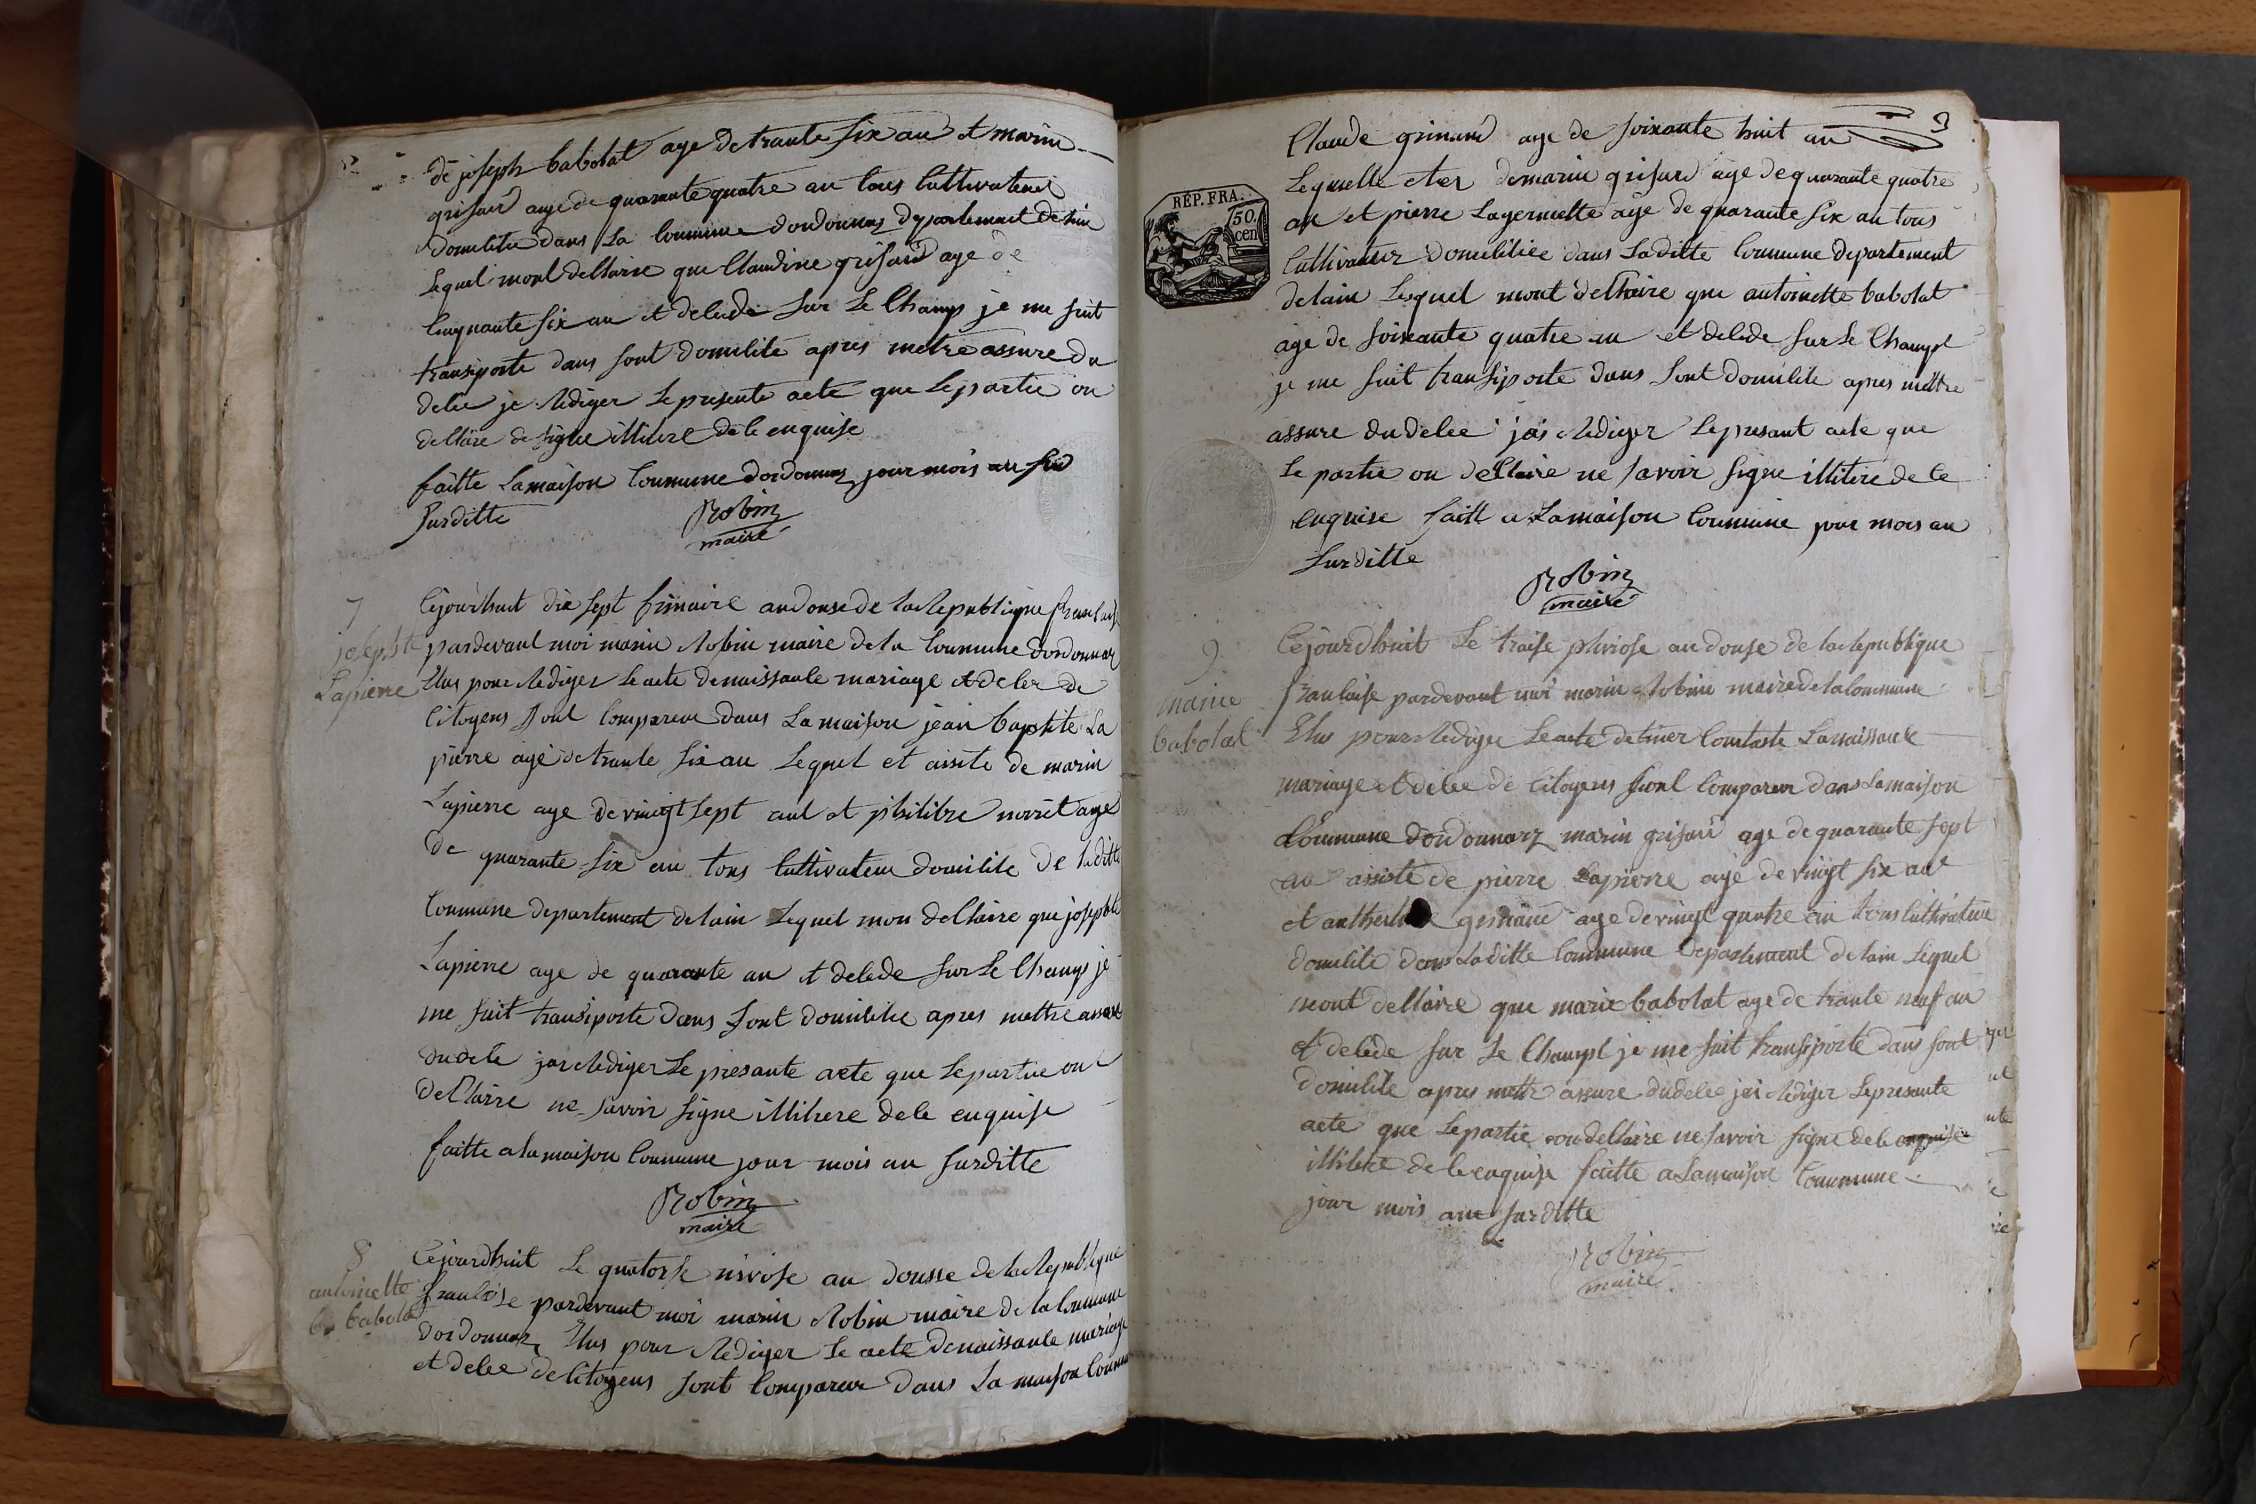 de joseph babolat age de trante six an et marin
grisard age de quarante quatre an tous Cultivateur
domilitie dans La Commune dordonnas departement delain
Lequel mont dellaire que Claudine grisard age de
Cinquante six an et delede sur Le Champ je me suit
transporte dans sont domilite apres metre assure du
delee je Rediger Le presente acte que Le partie on
dellare de signe illitere de le enquise
faitte La maison Commune dordonnas jour mois an sud
surditte
Robin
maire
7
josephte
Lapierre
Cejourdhuit dix sept frimaire an douse de la Republique franlaise
pardevant moi marin Robin maire de la Commune dordonnas
Elus pour Rediger Le acte de naissanle mariage et delee de
Citoyens sont Compareu dans La maison jean baptiste La
pierre age de trante six an Lequel et assite de marin
Lapierre age de vingt sept ant et philibre morel age
de quarante six an tous Cultivateur domilite de laditte
Commune departement delain Lequel mon dellaire que josephte
Lapierre age de quarante an et delede sur Le Champ je
me suit transporte dans sont domilite apres mettre assure
du dele jai Rediger Le presante acte que Le partie ont
dellaire ne savoir signe illitere de le enquise
faitte a la maison Commune jour mois an surditte
Robin
maire
8
antoinette
babolat
Cejourdhuit Le quatorse nivose an dousse de la Republique
franlaise pardevant moi marin Robin maire de la Commune
dordonnas Elus pour Rediger Le acte de naissanle mariage
et delee de Citoyens sont Compareu dans La maison Commune
3
Claude grinand age de soixante huit an
Lequelle et de marin grisard age de quarante quatre
an et pierre Lagernette age de quarante six an tous
Cultivateur domilitiee dans La ditte Commune departement
delain Lesquel mont dellaire que antoinette babolat
age de soixante quatre an et delede sur Le Champt
je me suit transporte dans sont domilite apres mettre
assure du delee jai Rediger Le presant acte que
Le partie on dellaire ne savoir signe illitere de le
enquise fait a La maison Commune jour mois an
surditte
Robin
maire
RÉP. FRA.
50
cen
9
marie
babolat
Cejourdhuit Le traise pluviose an douse de la Republique
franlaise pardevant moi marin Robin maire de la Commune
Elus pour Rediger Le acte Contaste La naissanle
mariage et delee de Citoyens sont Compareu dans La maison
Commune dordonnas marin grisard age de quarante sept
an assiste de pierre Lapierre age de vingt six ant
et age de vingt quatre an tous Cultivateur
domilite dans La ditte Commune departement delain Lequel
mont dellaire que marie babolat age de trante neuf an
et delede sur Le Champt je me suit transporte dans sont
domilite apres mettre assure du delee jai Rediger Le presante
acte que Le partie on dellaire ne savoir signe de le enquise
illitere de le enquise faitte a La maison Commune
jour mois an surditte
Robin
maire